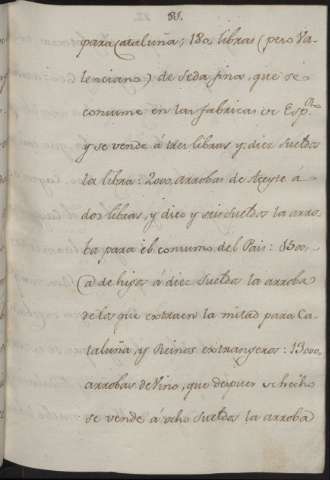 81.
para Cataluña; 180, libras (pero Va-
lenciano) de seda fina, que se
consume en las fabricas de Esp.
y se vende á tres libras y, diez sueldos
la libra: 2000, arrobas de Azeyte á
dos libras, y diez y seis sueldos la arro-
ba para el consumo del Pais: 1500,
@ de higos á diez sueldos la arroba
de los que extraen la mitad para Ca-
taluña, y Reinos extranjeros: 13000,
arrobas de Vino, que despues de hecho
se vende á ocho sueldos la arroba